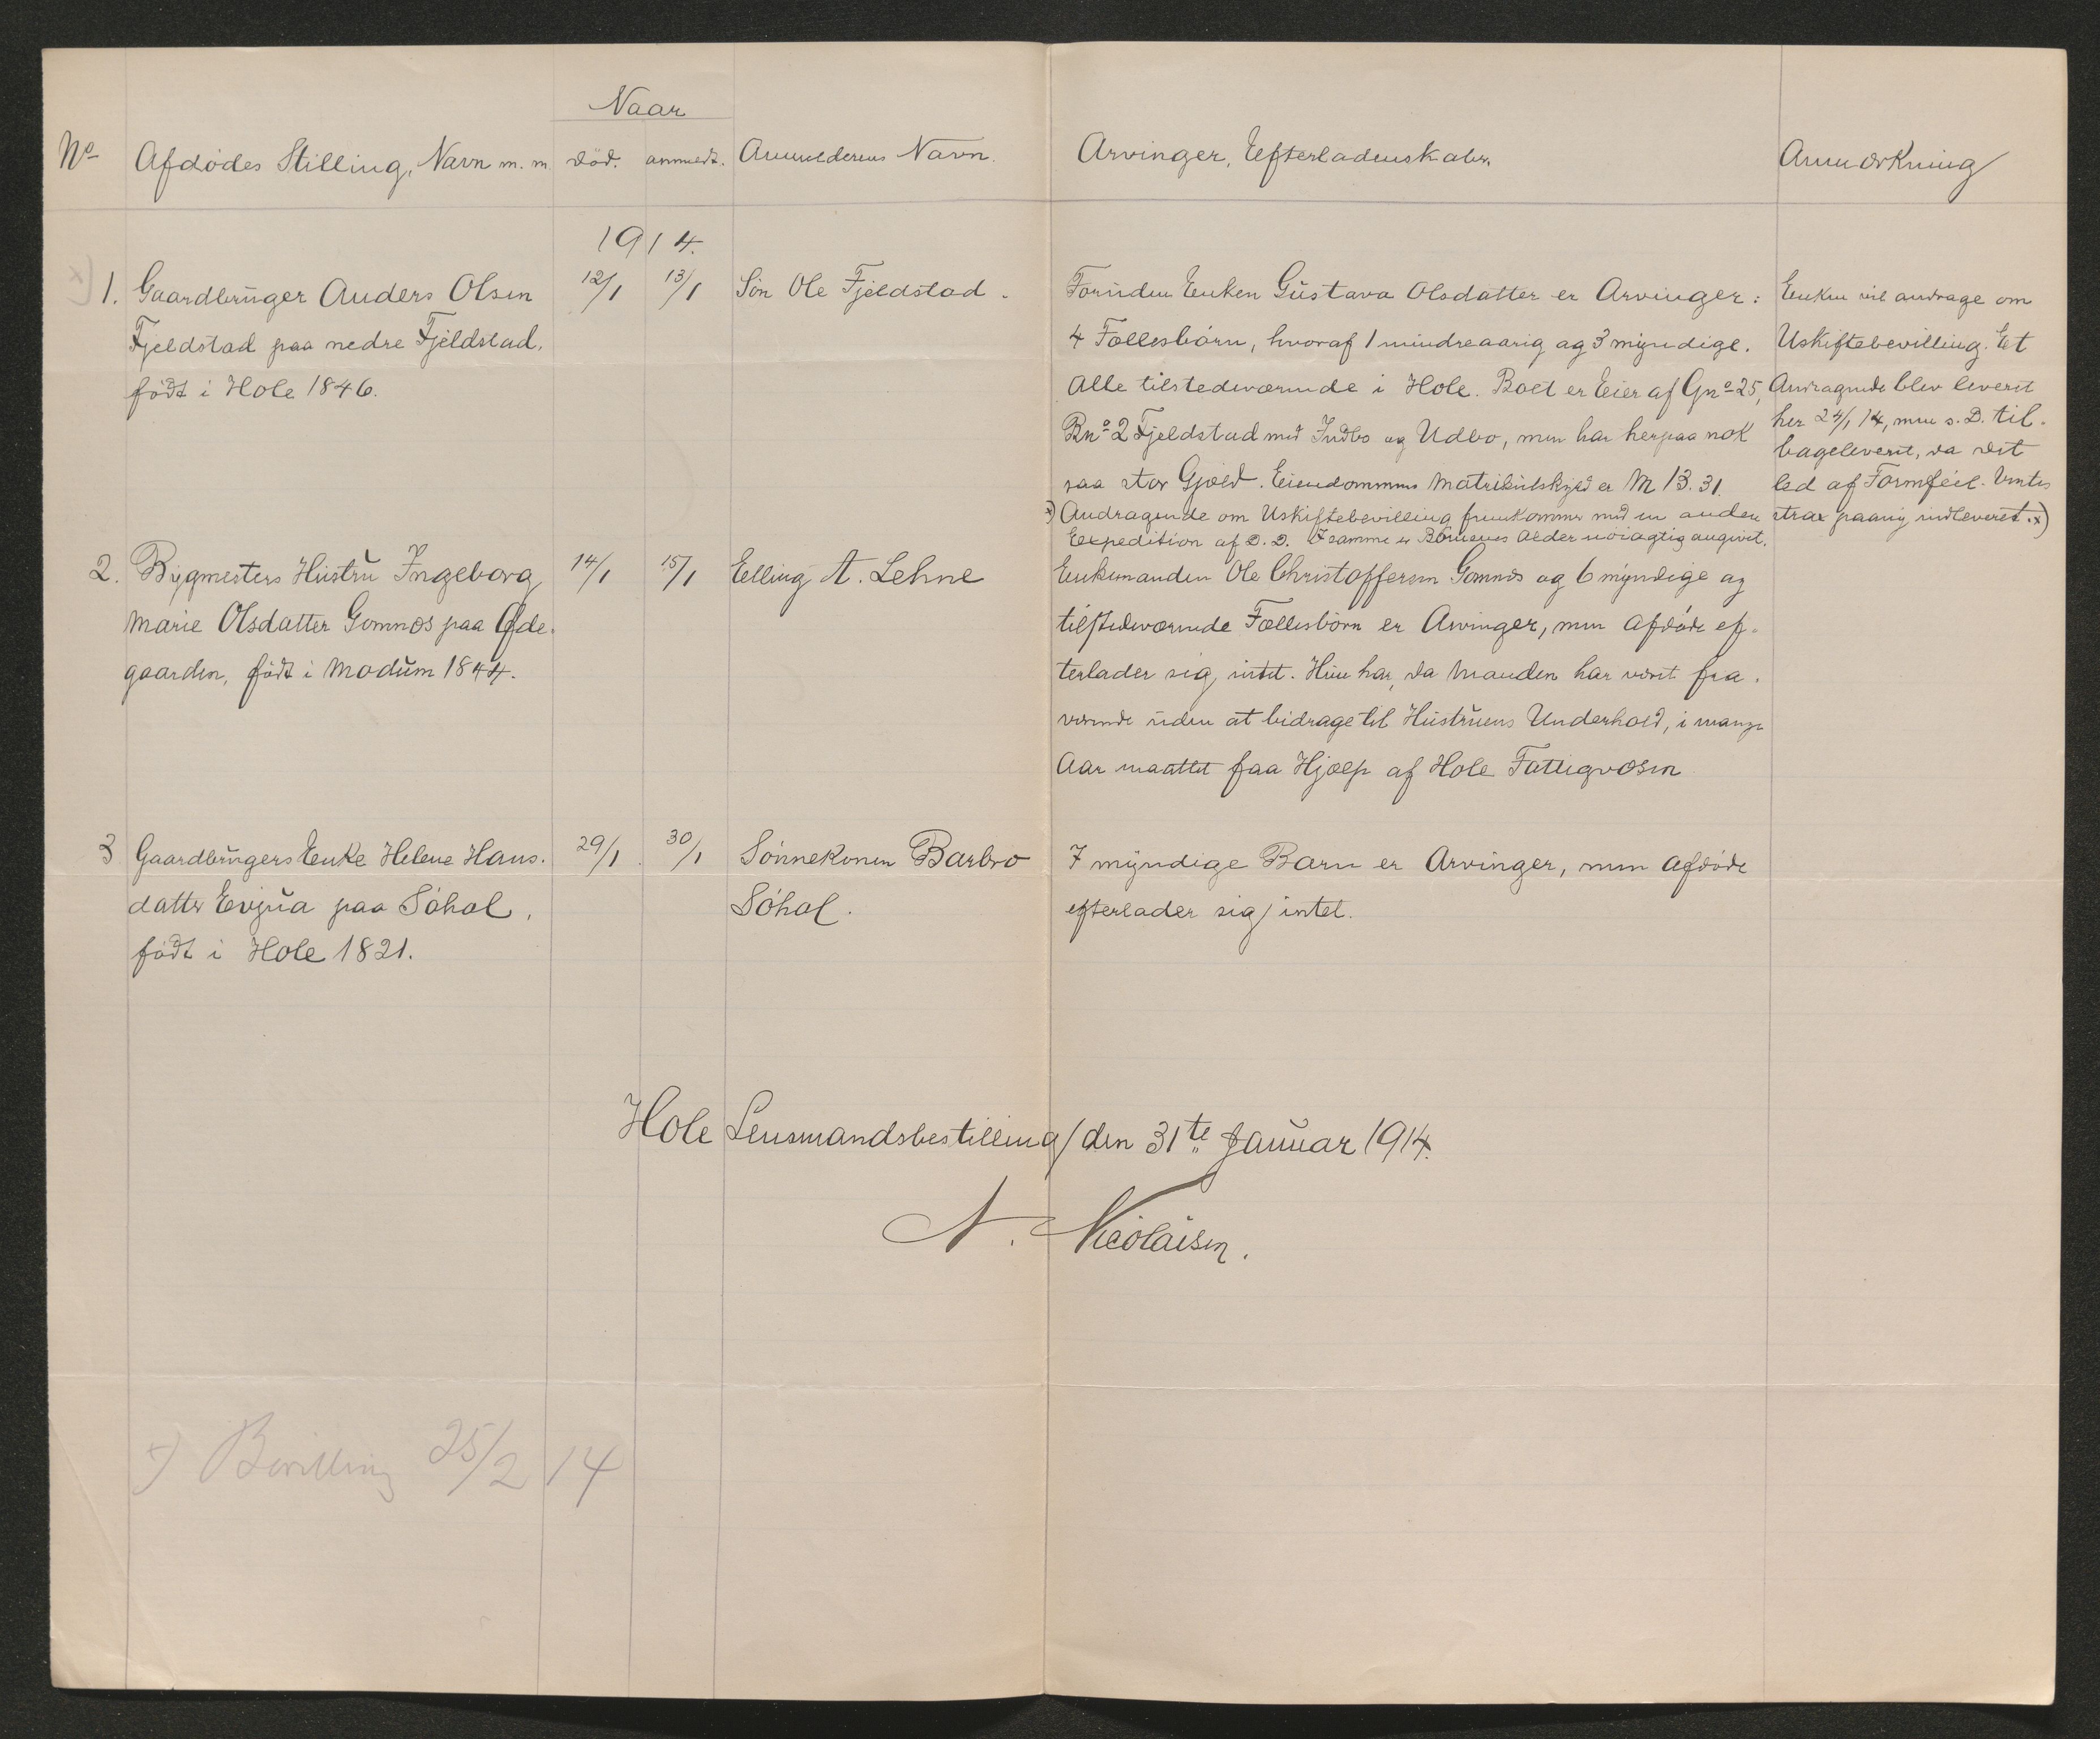 Naar
No Afdödes Stilling, Navn m. m. död. anmeldt. Anmelderens Navn. Arvinger, Efterladenskaber. Anmærkning
1914.
x) 1. Gaardbruger Anders Olsen 12/1 13/1 Sön Ole Fjeldstad.
Fjeldstad paa nedre Fjeldstad,
födt i Hole 1846.
Foruden Enken Gustava Olsdatter er Arvinger:
4 Fællesbörn, hvoraf 1 mindreaarig og 3 myndige.
Alle tilstedeværende i Hole. Boet er Eier af Gno 25,
Bno 2 Fjeldstad med Indbo og Udbo, men har herpaa nok
saa stor Gjæld. Eiendommens Matrikulskyld er M 13.31.
x) Andragende om Uskiftebevilling fremkommer med en anden
Expedition af D. D. I samme er Börnenes Alder nöiagtig angivet.
Enken vil andrage om
Uskiftebevilling. Et
Andragende blev leveret
her 24/1 14, men s. D. til-
bageleveret, da det
led af Formfeil. Ventes
strax paany indleveret. x)
2. Bygmesters Hustru Ingeborg 14/1 15/1 Elling A. Lehne
Marie Olsdatter Gomnæs paa Øde-
gaarden, födt i Modum 1844.
Enkemanden Ole Christoffersen Gomnæs og 6 myndige og
tilstedeværende Fællesbörn er Arvinger, men Afdöde ef-
terlader sig intet. Hun har, da Manden har været fra-
værende uden at bidrage til Hustruens Underhold, i mange
Aar maattet faa Hjælp af Hole Fattigvæsen
3 Gaardbrugers Enke Helene Hans- 29/1 30/1 Sönnekonen Barbro
datter Evjua paa Söhol, Söhol.
födt i Hole 1821.
7 myndige Barn er Arvinger, men Afdöde
efterlader sig intet.
Hole Lensmandsbestilling den 31te Januar 1914.
N. Nicolaisen.
x) Bevilling 25/2 14